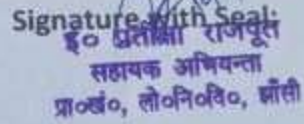 Signature with Seal:
इ० प्रतीक्षा राजपूत
सहायक अभियन्ता
प्रा०खं०, लो०नि०वि०, झाँसी